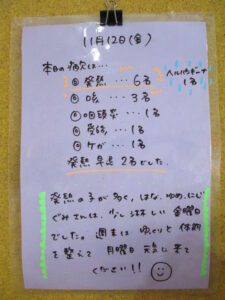 11月12日(金)
本日の病欠は…
◎発熱…6名
ヘルパンギーナ
1名
◎咳…3名
◎咽頭炎…1名
◎受診…1名
◎ケガ…1名
発熱早退2名でした。
発熱の子が多く、はな、ゆめ、にじ
ぐみさんは、少し淋しい金曜日
でした。週末はゆっくり体調
を整えて月曜日元気に来て
ください!!